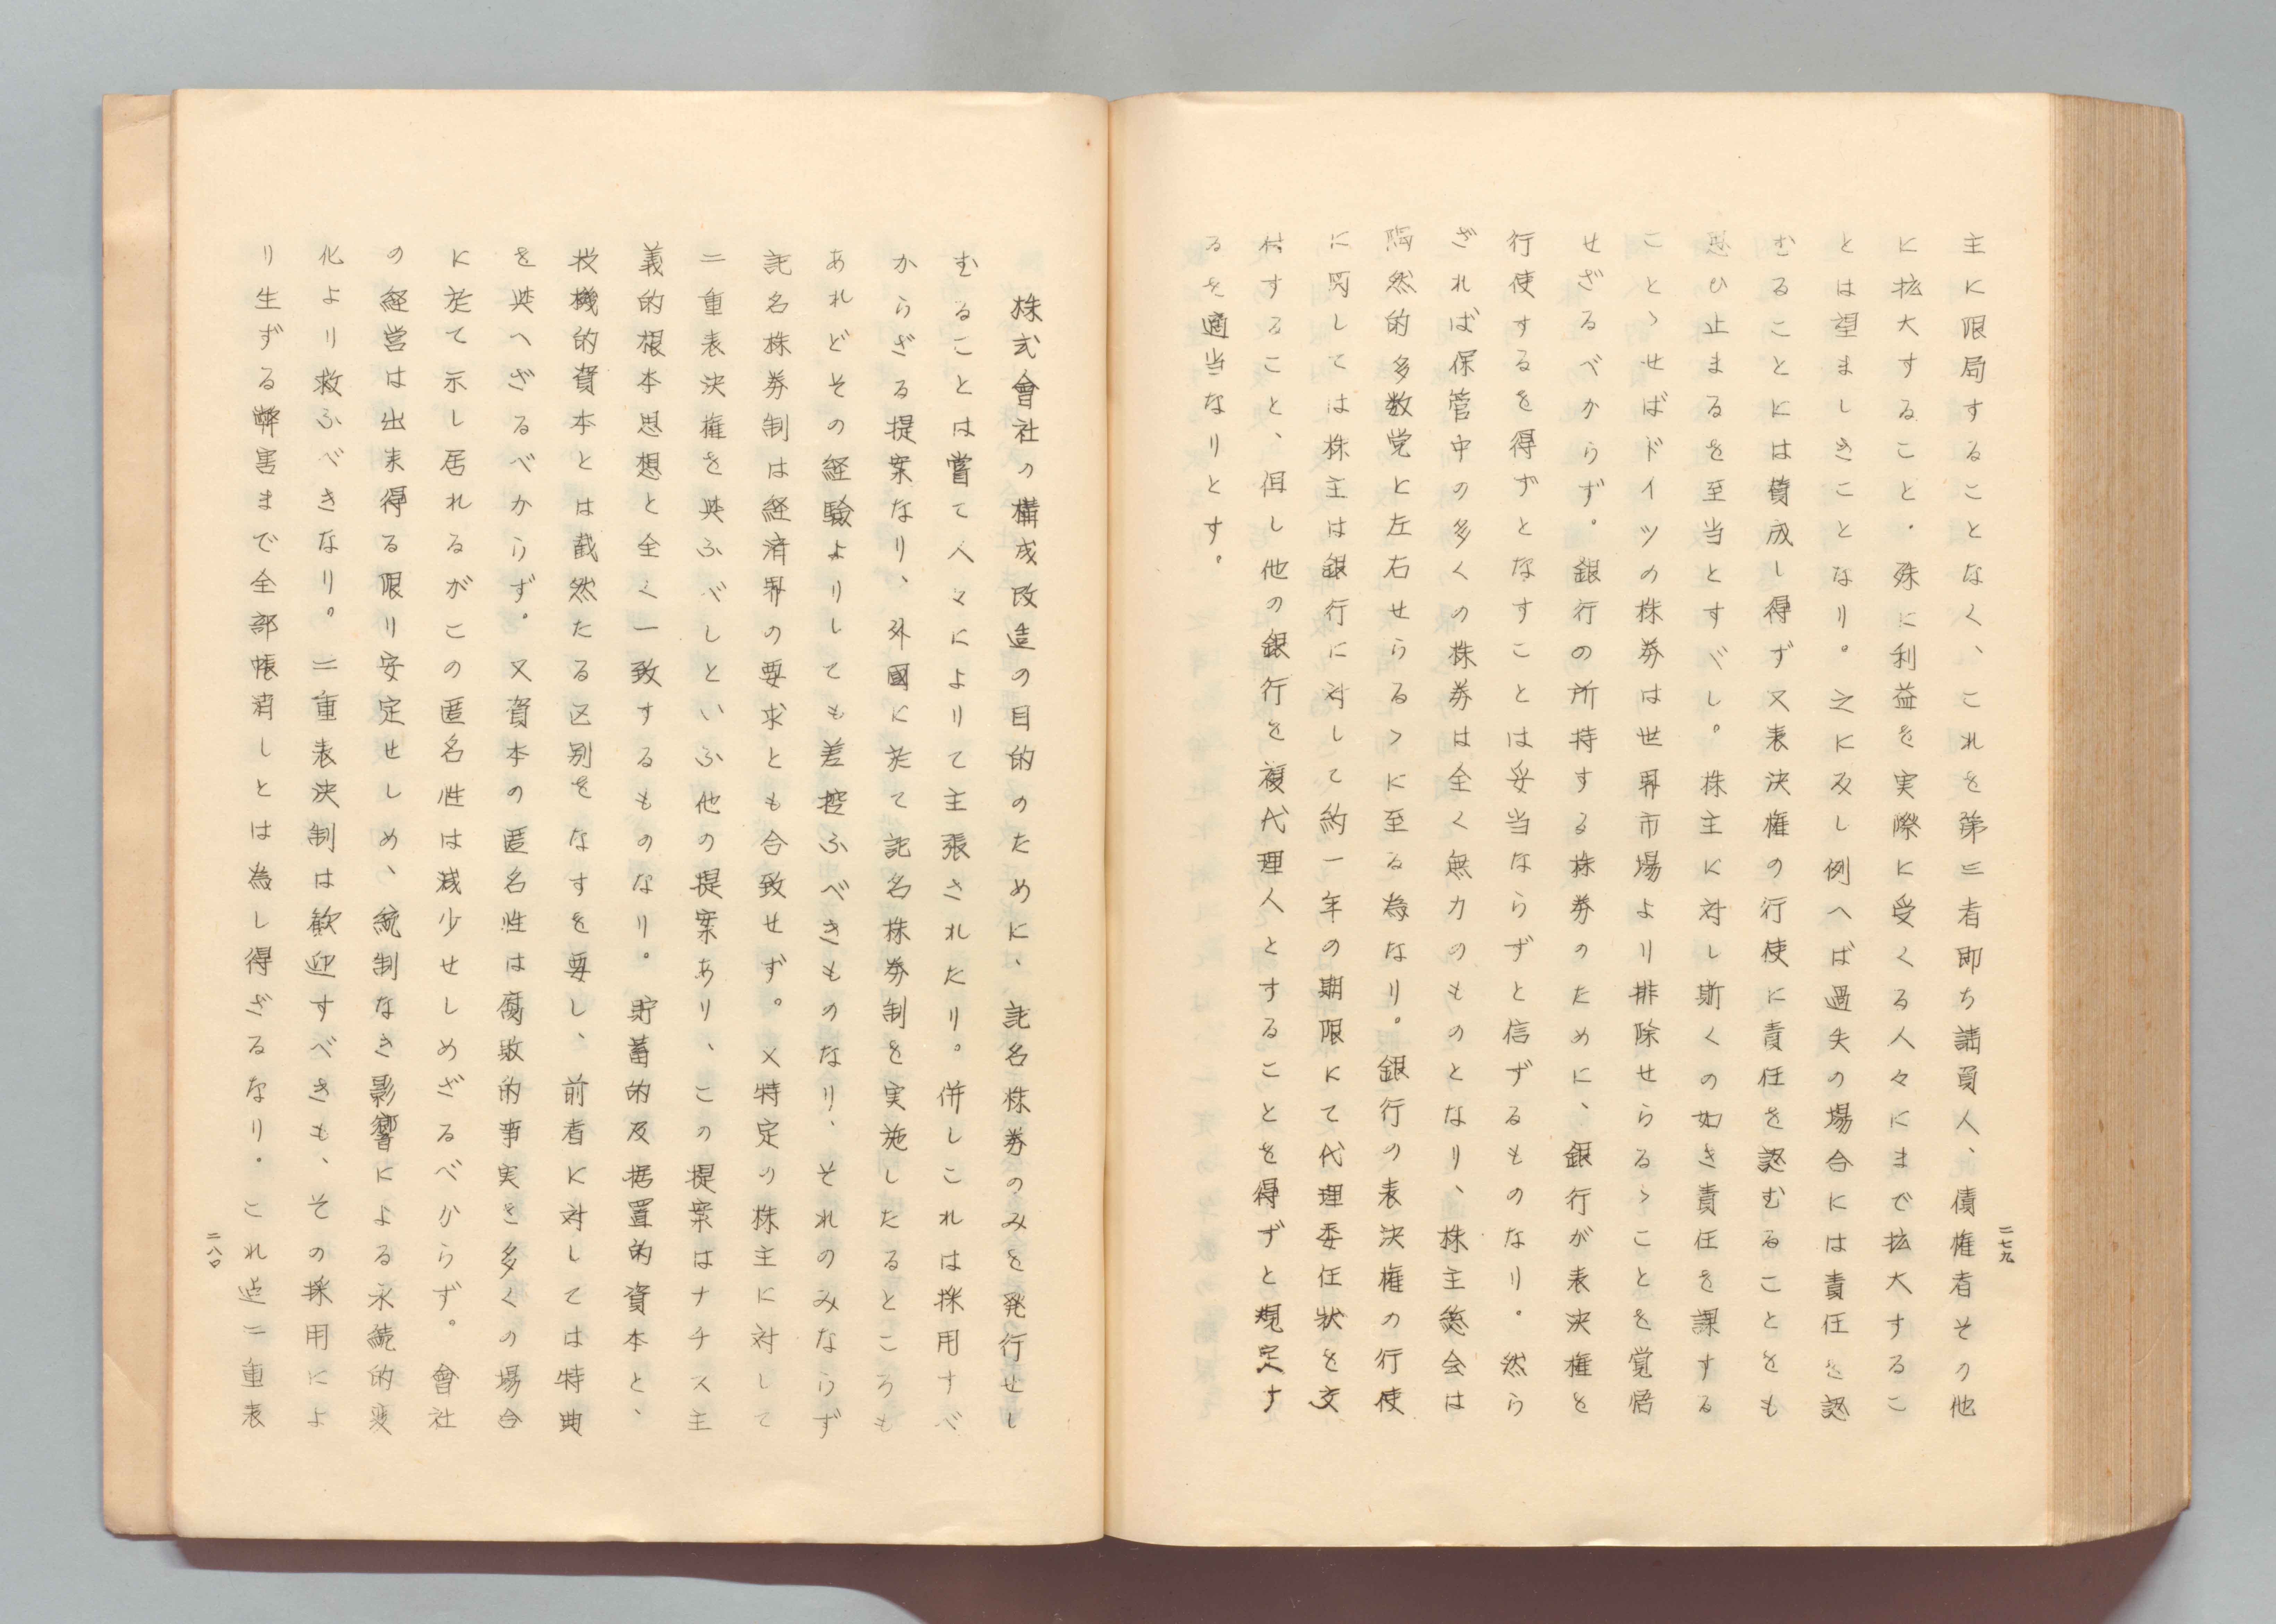 二七九
主に限局することなく、これを第三者即ち請負人、債権者その他
に拡大すること・殊に利益を実際に受くる人々にまで拡大するこ
とは望ましきことなり。之に反し例へば過失の場合には責任を認
むることには賛成し得ず又表決権の行使に責任を認むることをも
思ひ止まるを至当とすべし。株主に対し斯くの如き責任を課する
ことゝせばドイツの株券は世界市場より排除せらるゝことを覚悟
せざるべからず。銀行の所持する株券のために、銀行が表決権を
行使するを得ずとなすことは妥当ならずと信ずるものなり。然ら
ざれば保管中の多くの株券は全く無力のものとなり、株主総会は
偶然的多数党に左右せらるゝに至る為なり。銀行の表決権の行使
に関しては株主は銀行に対して約一年の期限にて代理委任状を交
付すること、但し他の銀行を複代理人とすることを得ずと規定す
るを適当なりとす。
株式會社の構成改造の目的のために、記名株券のみを発行せし
むることは嘗て人々によりて主張されたり。併しこれは採用すべ
からざる提案なり、外國に於て記名株券制を実施したるところも
あれどその経験よりしても差控ふべきものなり、それのみならず
記名株券制は経済界の要求とも合致せず。又特定の株主に対して
二重表決権を与ふべしといふ他の提案あり、この提案はナチス主
義的根本思想と全く一致するものなり。貯蓄的及据置的資本と、
投機的資本とは截然たる区別をなすを要し、前者に対しては特典
を与へざるべからず。又資本の匿名性は腐敗的事実を多くの場合
に於て示し居れるがこの匿名性は減少せしめざるべからず。會社
の経営は出来得る限り安定せしめ、統制なき影響による永続的変
化より救ふべきなり。二重表決制は歓迎すべきも、その採用によ
り生ずる弊害まで全部帳消しとは為し得ざるなり・これ迄二重表
二八〇